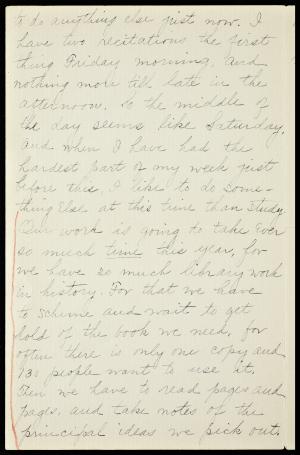 to do anything else just now. I
have two recitations the first
thing Friday morning, and
nothing more till late in the
afternoon. So the middle of
the day seems like Saturday,
and when I have had the
hardest part of my week just
before this, I like to do some-
thing else at this time than study.
Our work is going to take ever
so much time this year, for
we have so much library work
in history. For that we have
to scheme and wait to get
hold of the book we need, for
often there is only one copy and
130 people want to use it.
Then we have to read pages and
pages, and take notes of the
principal ideas we pick out.